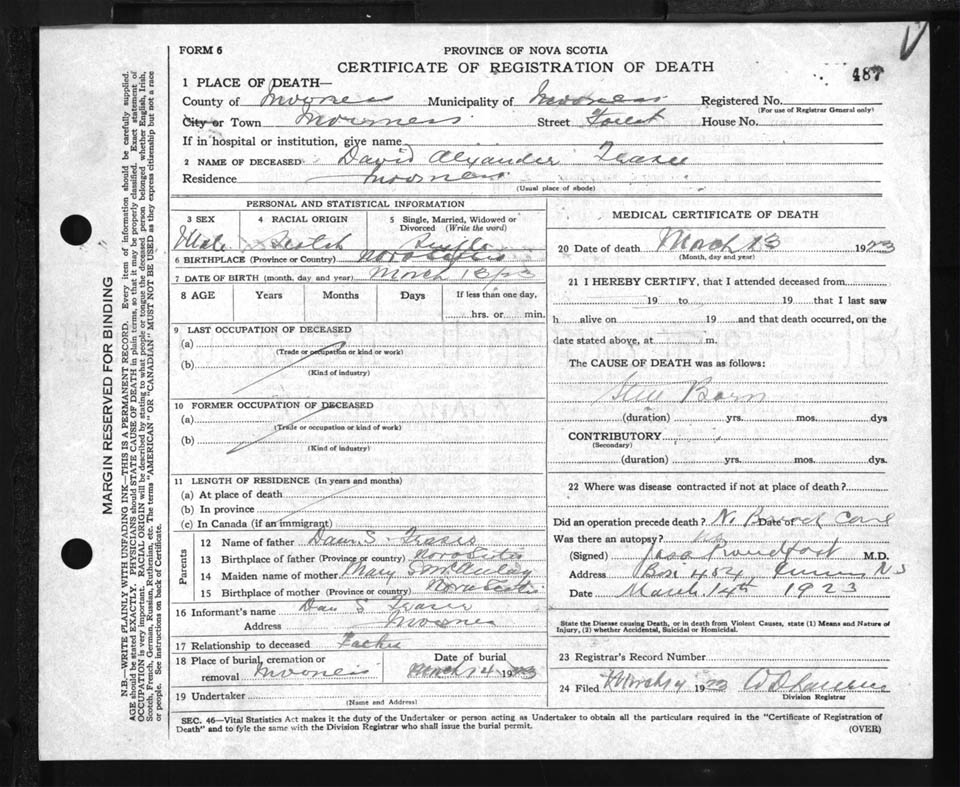 FORM 6
PROVINCE OF NOVA SCOTIA
CERTIFICATE OF REGISTRATION OF DEATH
487
1 PLACE OF DEATH—
County of Municipality of Registered No.
(For use of Registrar General only)
City or Town Street Forest House No.
If in hospital or institution, give name
2 NAME OF DECEASED David Alexander Fraser
Residence
(Usual place of abode)
MARGIN RESERVED FOR BINDING
N.B.—WRITE PLAINLY WITH UNFADING INK—THIS IS A PERMANENT RECORD. Every item of information should be carefully supplied.
AGE should be stated EXACTLY. PHYSICIANS should STATE CAUSE OF DEATH in plain terms, so that it may be properly classified. Exact statement of
OCCUPATION is very important. RACIAL ORIGIN will be described by stating to what people or tongue the deceased person belonged whether English, Irish,
Scotch, French, German, Russian, Ruthenian, etc. The terms "AMERICAN" OR "CANADIAN" MUST NOT BE USED as they express citizenship but not a race
or people. See instructions on back of Certificate.
PERSONAL AND STATISTICAL INFORMATION
3 SEX 4 RACIAL ORIGIN 5 Single, Married, Widowed or
Divorced (Write the word)
Male Scotch Single
6 BIRTHPLACE (Province or Country) Nova Scotia
7 DATE OF BIRTH (month, day and year) March 13/23
8 AGE Years Months Days If less than one day,
hrs. or min.
9 LAST OCCUPATION OF DECEASED
(a)
(Trade or occupation or kind or work)
(b)
(Kind of industry)
10 FORMER OCCUPATION OF DECEASED
(a)
(Trade or occupation or kind of work)
(b)
(Kind of industry)
11 LENGTH OF RESIDENCE (In years and months)
(a) At place of death
(b) In province
(c) In Canada (if an immigrant)
Parents
12 Name of father Dan S. Fraser
13 Birthplace of father (Province or country) Nova Scotia
14 Maiden name of mother Mary S McAulay
15 Birthplace of mother (Province or country) Nova Scotia
16 Informant's name Dan S Fraser
Address
17 Relationship to deceased Father
18 Place of burial, cremation or Date of burial
removal March 14 1923
19 Undertaker
(Name and Address)
MEDICAL CERTIFICATE OF DEATH
20 Date of death March 13 1923
(Month, day and year)
21 I HEREBY CERTIFY, that I attended deceased from
19 to 19 that I last saw
h alive on 19 and that death occurred, on the
date stated above, at m.
The CAUSE OF DEATH was as follows:
Still Born
(duration) yrs. mos. dys
CONTRIBUTORY
(Secondary)
(duration) yrs. mos. dys.
22 Where was disease contracted if not at place of death?
Did an operation precede death? No Date of
Was there an autopsy? No
(Signed) Proudfoot M.D.
Address Box 454 N S
Date March 14th 1923
State the Disease causing Death, or in death from Violent Causes, state (1) Means and Nature of
Injury, (2) whether Accidental, Suicidal or Homicidal.
23 Registrar's Record Number
24 Filed March 14 1923
Division Registrar
SEC. 46—Vital Statistics Act makes it the duty of the Undertaker or person acting as Undertaker to obtain all the particulars required in the "Certificate of Registration of
Death" and to fyle the same with the Division Registrar who shall issue the burial permit.
(OVER)